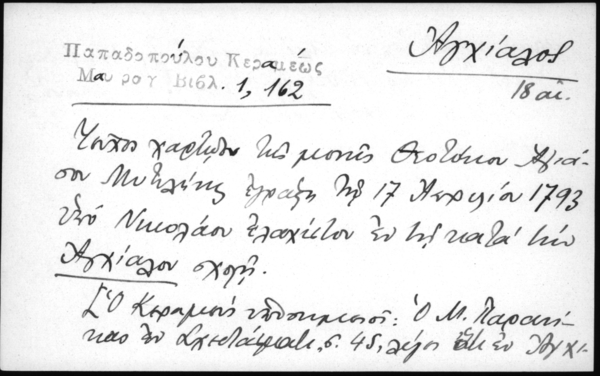 Παπαδοπούλου Κεραμέως
Μαυρογ Βιβλ. 1, 162
Ἀγχίαλος
18 αἰ.
χαρτῷος τῆς μονῆς Θεοτόκου Ἁγιά-
σου Μυτιλήνης ἐγράφη τῇ 17 Ἀπριλίου 1793
ὑπό Νικολάου ἐλαχίστου ἐν τῇ κατά τήν
Ἀγχίαλον σχολῇ.
Ὁ Κεραμεύς ὑποσημειοῖ: Ὁ Μ. Παρανί-
κας ἐν Σχεδιάσματι, σ. 45, λέγει ὅτι ἐν Ἀγχι-